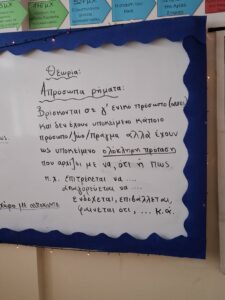 Θεωρία:
Απρόσωπα ρήματα:
Βρίσκονται σε γ' ενικό πρόσωπο
και δεν έχουν υποκείμενο κάποιο
πρόσωπο/ζώο/πράγμα αλλά έχουν
ως υποκείμενο ολόκληρη πρόταση
που αρχίζει με να, ότι ή πως.
π.χ. επιτρέπεται να ....
απαγορεύεται να ....
ενδέχεται, επιβάλλεται,
φαίνεται ότι, ... κ.ά.